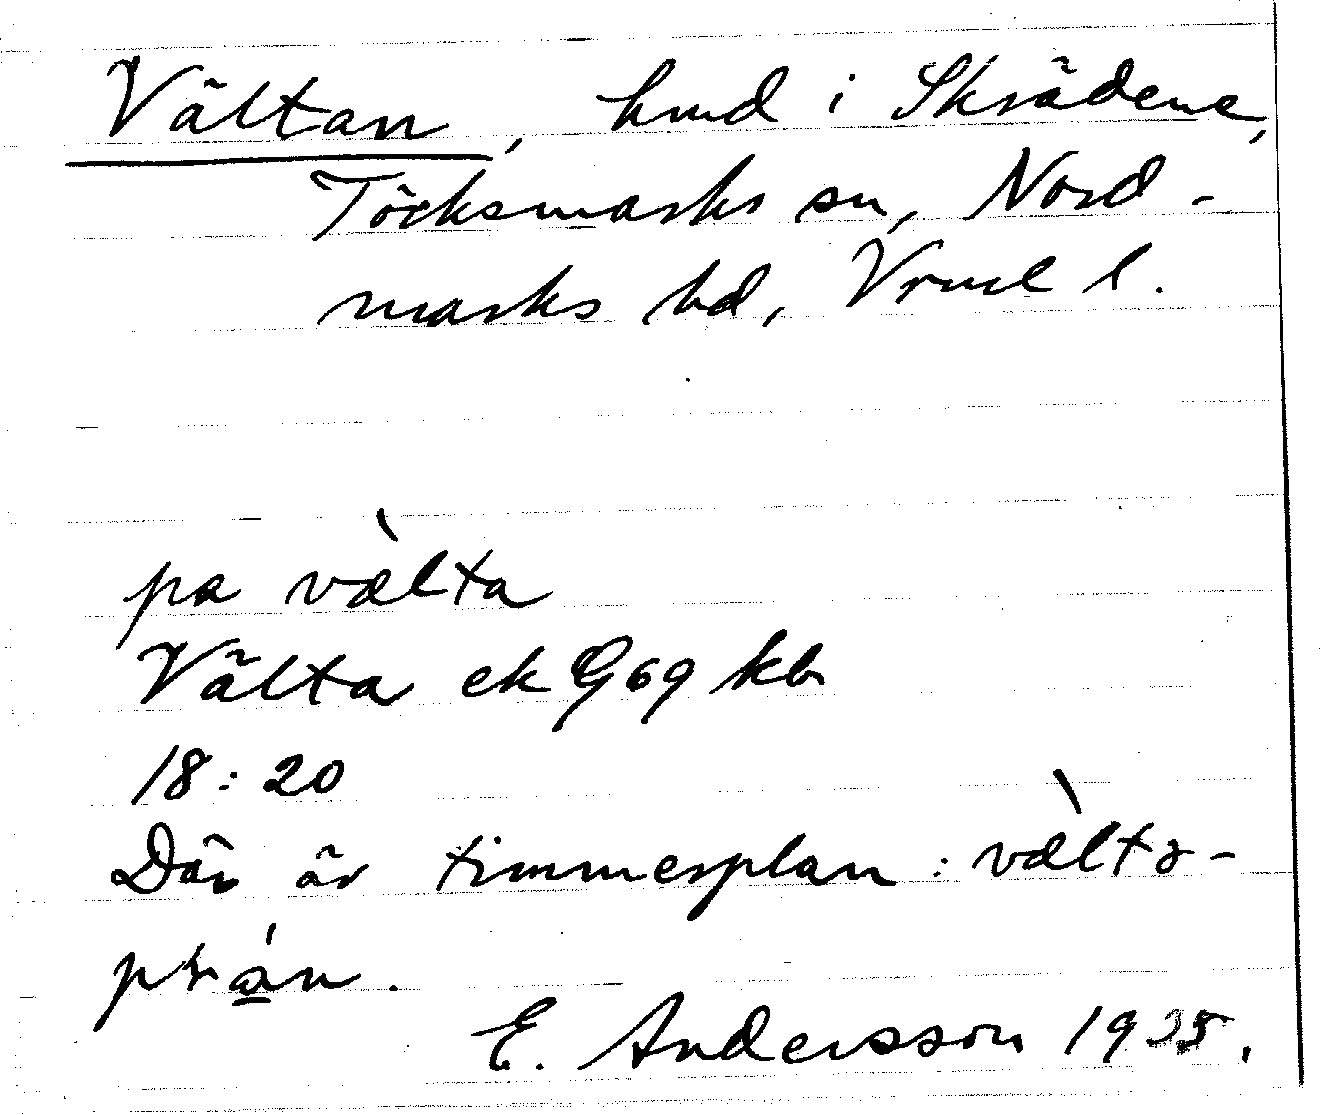 Vältan, hmd i Skrädene,
Töcksmarks sn, Nord-
marks hd, Vrml l.
pa væ̀lta
Välta ek G 69 kb
18:20
Där är timmerplan: væ̀lta-
plán.
E. Andersson 1935.